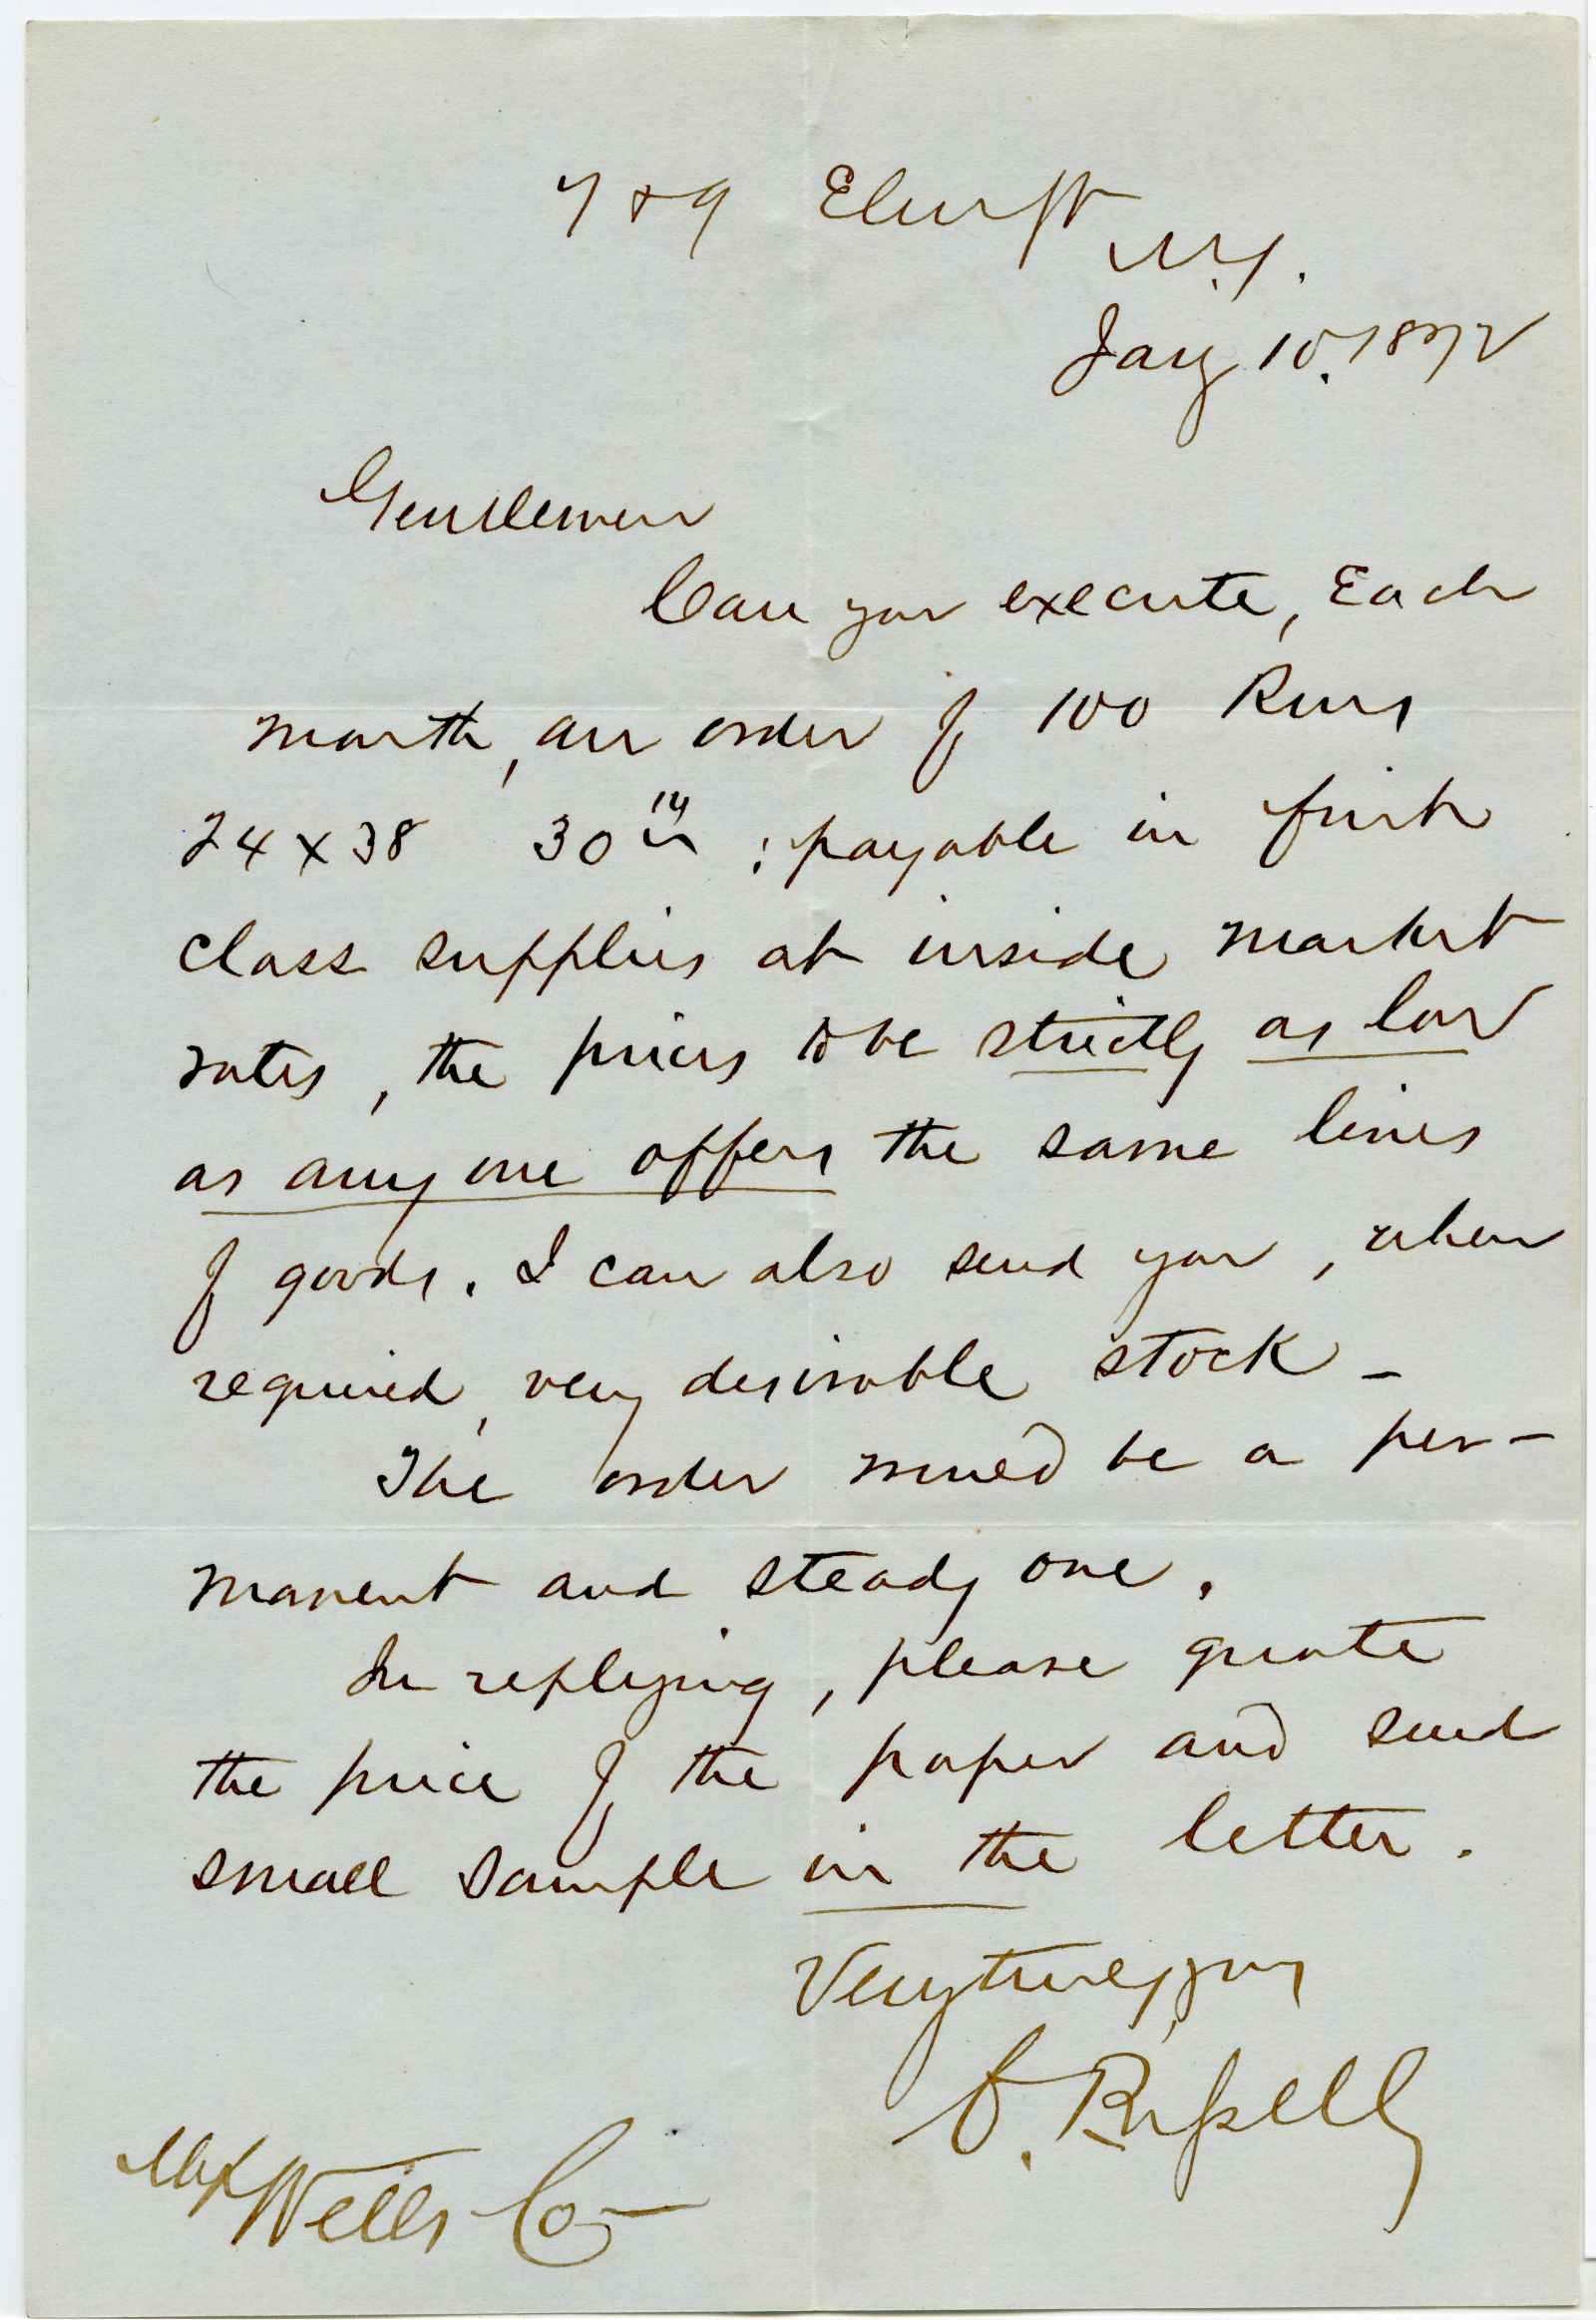 7 & 9 Elm St
N.Y.
Jany 10. 1872
Gentlemen
Can you execute, Each
month, an order of 100 Rms
24 x 38 30 ; payable in first
class supplies at inside market
rates, the prices to be strictly as low
as any one offers the same lines
of goods. I can also send you, when
required, very desirable stock -
The order would be a per-
manent and steady one.
In replying, please quote
the price of the paper and send
small sample in the letter.
Very truly yours
Russell
Wells Co